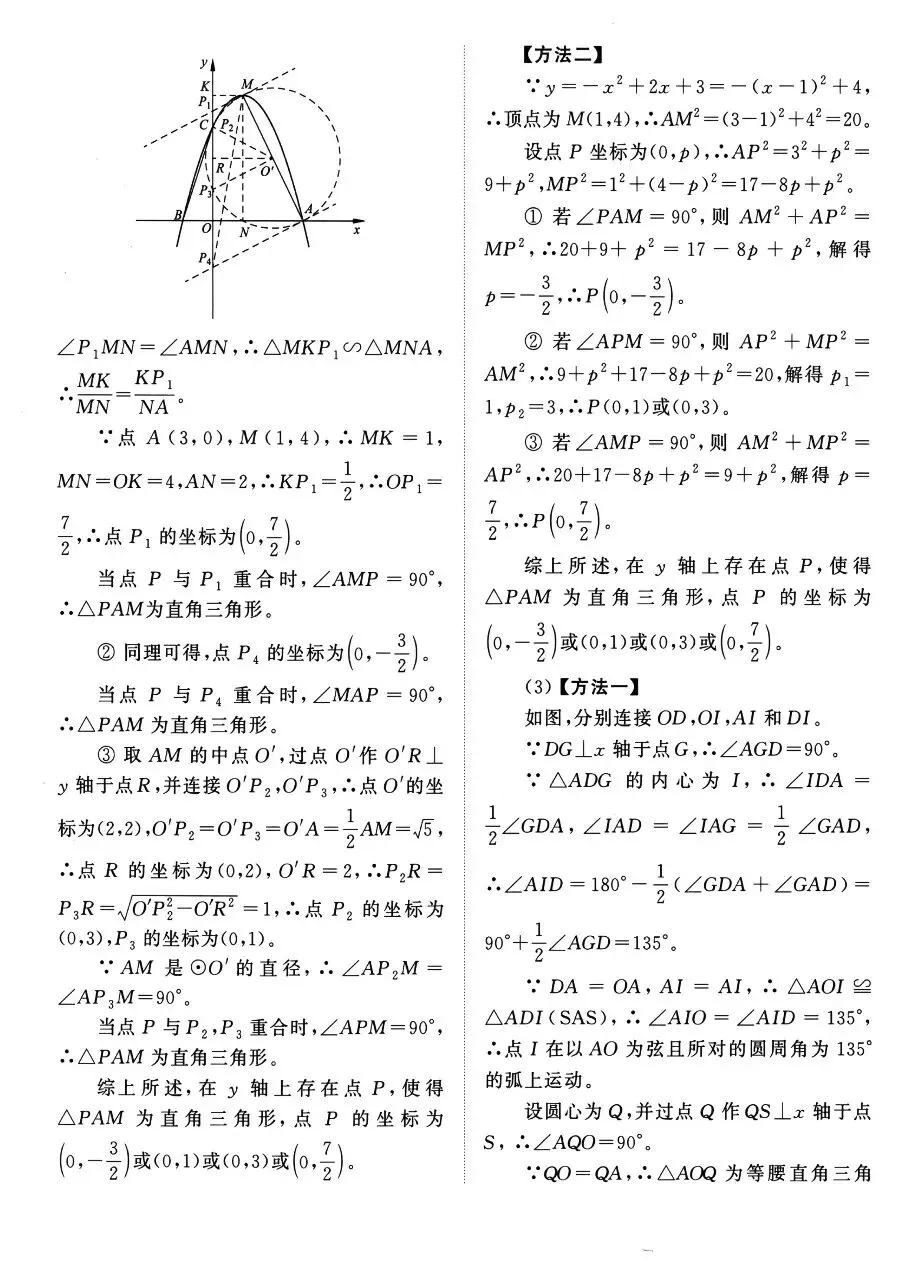 y
K
M
P₁
C
P₂
R
O′
P₃
B
O
N
A
x
P₄
∠P₁MN=∠AMN,∴△MKP₁∽△MNA,
∴MK/MN=KP₁/NA。
∵点 A(3,0),M(1,4),∴MK=1,
MN=OK=4,AN=2,∴KP₁=1/2,∴OP₁=
7/2,∴点 P₁ 的坐标为(0,7/2)。
当点 P 与 P₁ 重合时,∠AMP=90°,
∴△PAM为直角三角形。
② 同理可得,点 P₄ 的坐标为(0,-3/2)。
当点 P 与 P₄ 重合时,∠MAP=90°,
∴△PAM 为直角三角形。
③ 取 AM 的中点 O′,过点 O′作 O′R⊥
y 轴于点R,并连接 O′P₂,O′P₃,∴点 O′的坐
标为(2,2),O′P₂=O′P₃=O′A=1/2AM=√5,
∴点 R 的坐标为(0,2),O′R=2,∴P₂R=
P₃R=√(O′P₂²-O′R²)=1,∴点 P₂ 的坐标为
(0,3),P₃ 的坐标为(0,1)。
∵AM 是⊙O′的直径,∴∠AP₂M=
∠AP₃M=90°。
当点 P 与 P₂,P₃ 重合时,∠APM=90°,
∴△PAM 为直角三角形。
综上所述,在 y 轴上存在点 P,使得
△PAM 为直角三角形,点 P 的坐标为
(0,-3/2)或(0,1)或(0,3)或(0,7/2)。
【方法二】
∵y=-x²+2x+3=-(x-1)²+4,
∴顶点为 M(1,4),∴AM²=(3-1)²+4²=20。
设点 P 坐标为(0,p),∴AP²=3²+p²=
9+p²,MP²=1²+(4-p)²=17-8p+p²。
① 若∠PAM=90°,则 AM²+AP²=
MP²,∴20+9+p²=17-8p+p²,解得
p=-3/2,∴P(0,-3/2)。
② 若∠APM=90°,则 AP²+MP²=
AM²,∴9+p²+17-8p+p²=20,解得 p₁=
1,p₂=3,∴P(0,1)或(0,3)。
③ 若∠AMP=90°,则 AM²+MP²=
AP²,∴20+17-8p+p²=9+p²,解得 p=
7/2,∴P(0,7/2)。
综上所述,在 y 轴上存在点 P,使得
△PAM 为直角三角形,点 P 的坐标为
(0,-3/2)或(0,1)或(0,3)或(0,7/2)。
(3)【方法一】
如图,分别连接 OD,OI,AI 和 DI。
∵DG⊥x 轴于点G,∴∠AGD=90°。
∵△ADG 的内心为 I,∴∠IDA=
1/2∠GDA,∠IAD=∠IAG=1/2∠GAD,
∴∠AID=180°-1/2(∠GDA+∠GAD)=
90°+1/2∠AGD=135°。
∵DA=OA,AI=AI,∴△AOI≌
△ADI(SAS),∴∠AIO=∠AID=135°,
∴点 I 在以 AO 为弦且所对的圆周角为 135°
的弧上运动。
设圆心为 Q,并过点 Q 作 QS⊥x 轴于点
S,∴∠AQO=90°。
∵QO=QA,∴△AOQ 为等腰直角三角